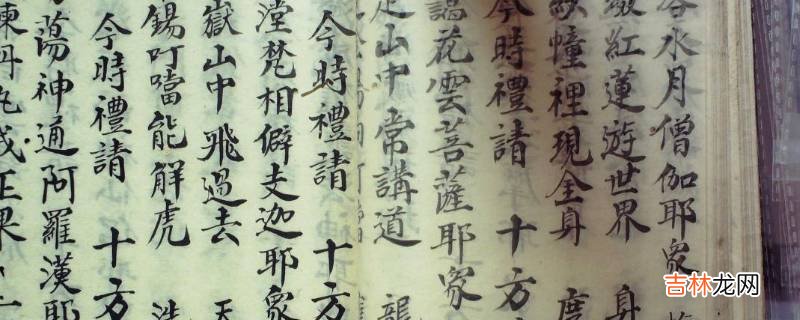 容水月僧伽耶眾
紅蓮遊世界 身
幢裡現全身 廣
今時禮請 十方
謁花雲菩薩耶眾
足山中常講道 龍
今時禮請 十方
瀅梵相僻支迦耶眾
嶽山中飛過去 天
錫叮噹能解虎 浩
今時禮請 十方
蕩神通阿羅漢耶
煉丹先成正果
吉林龙网